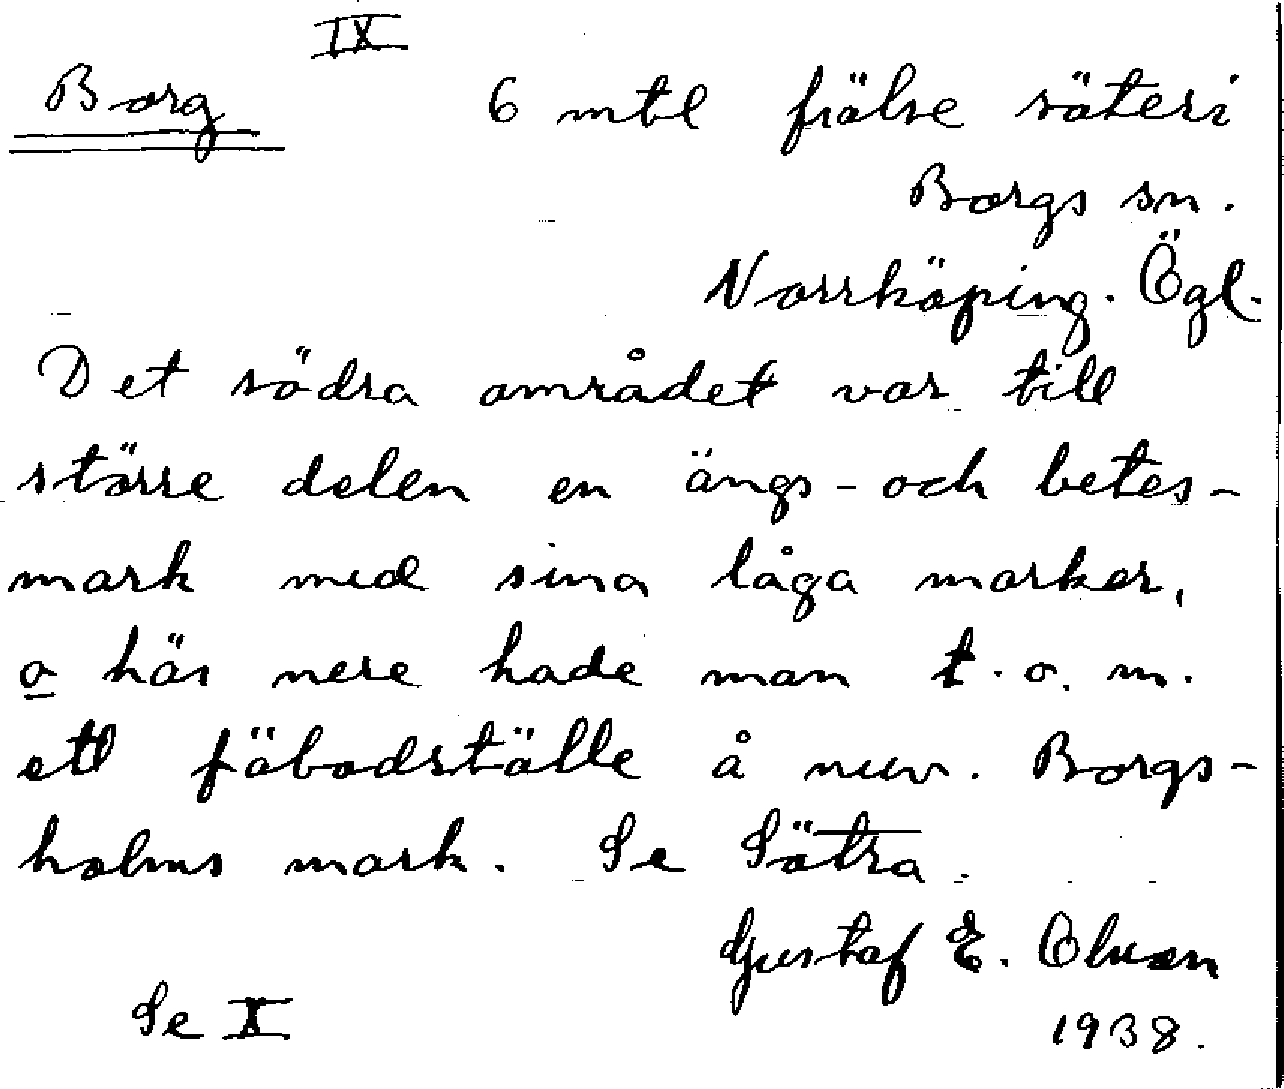 IX
Borg 6 mtl frälse säteri
Borgs sn.
Norrköping. Ögl.
Det södra området var till
större delen en ängs- och betes-
mark med sina låga marker,
o här nere hade man t.o.m.
ett fäbodställe å nuv. Borgs-
holms mark. Se Sätra.
Gustaf E. Olsson
Se X 1938.